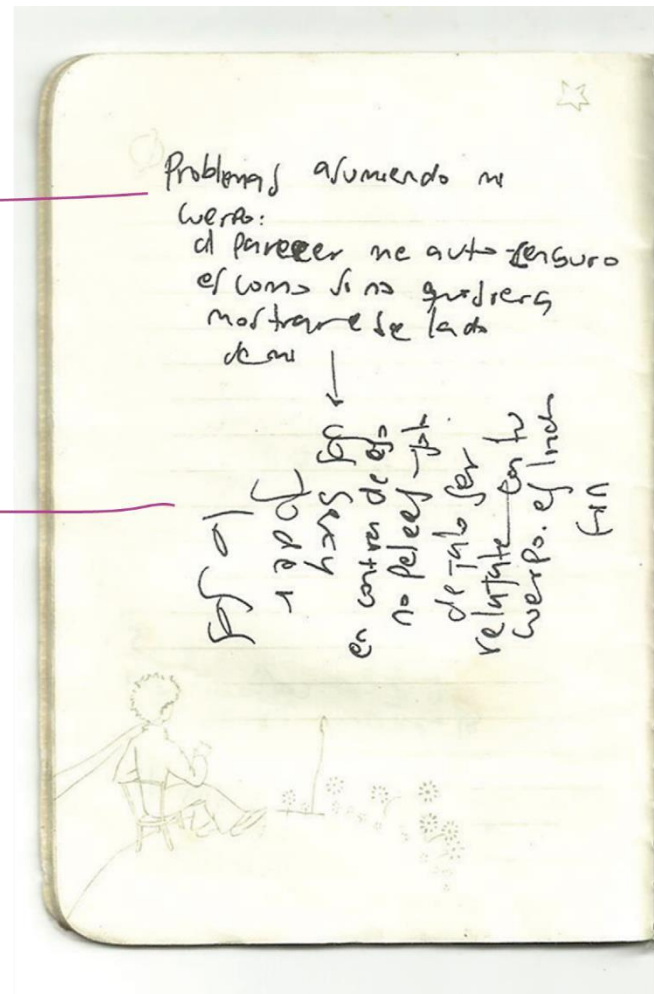 Problemas asumiendo mi
cuerpo:
al parecer me auto-censuro
es como si no quisiera
mostrarme ese lado
de mi
en contra de
no pelees
dejalo ser
relajate con tu
cuerpo. es lindo
fin